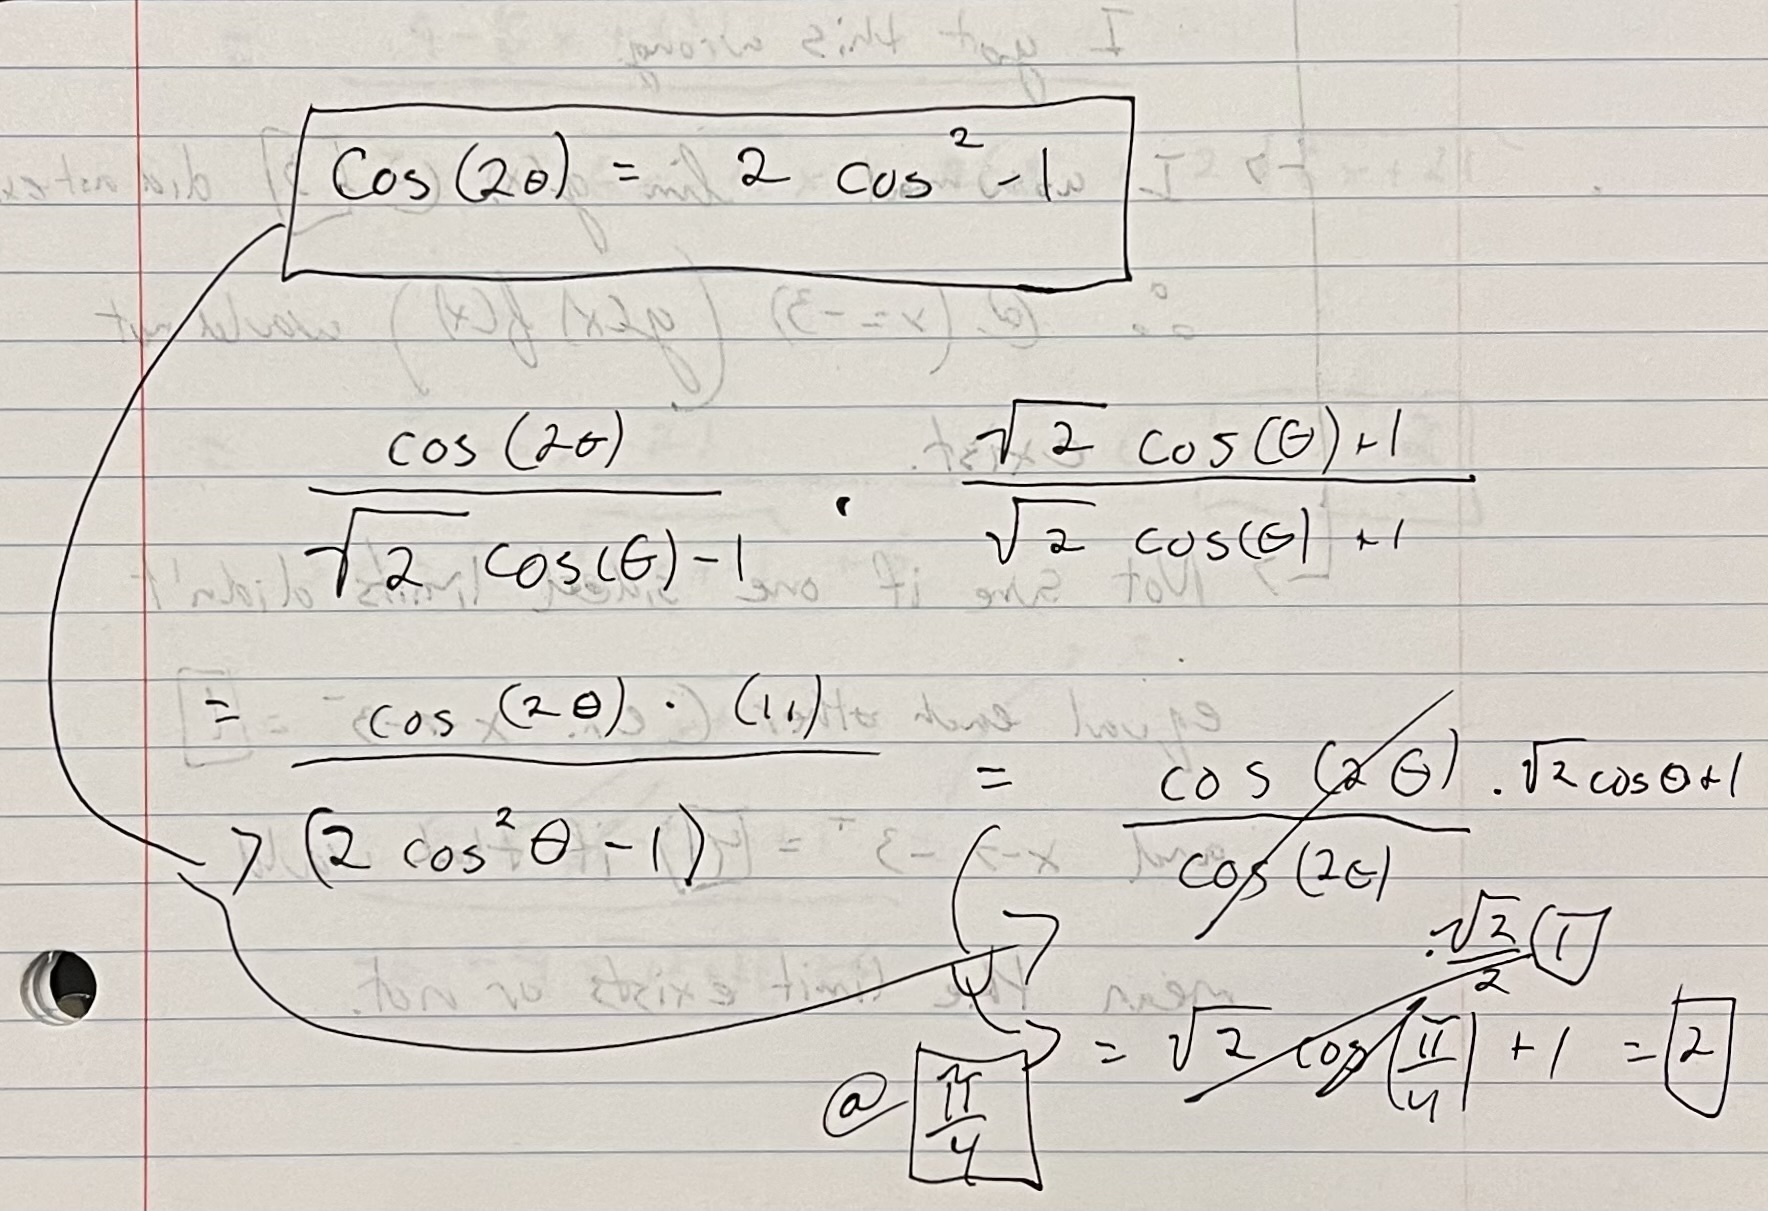 Cos(2θ) = 2 cos² -1
cos(2θ) / √2 cos(θ)-1 · √2 cos(θ)+1 / √2 cos(θ)+1
= cos(2θ)·(11) / (2 cos²θ -1) = cos(2θ) / cos(2θ) · √2 cosθ+1
· √2/2 (1)
@ π/4 = √2 cos(π/4) + 1 = 2